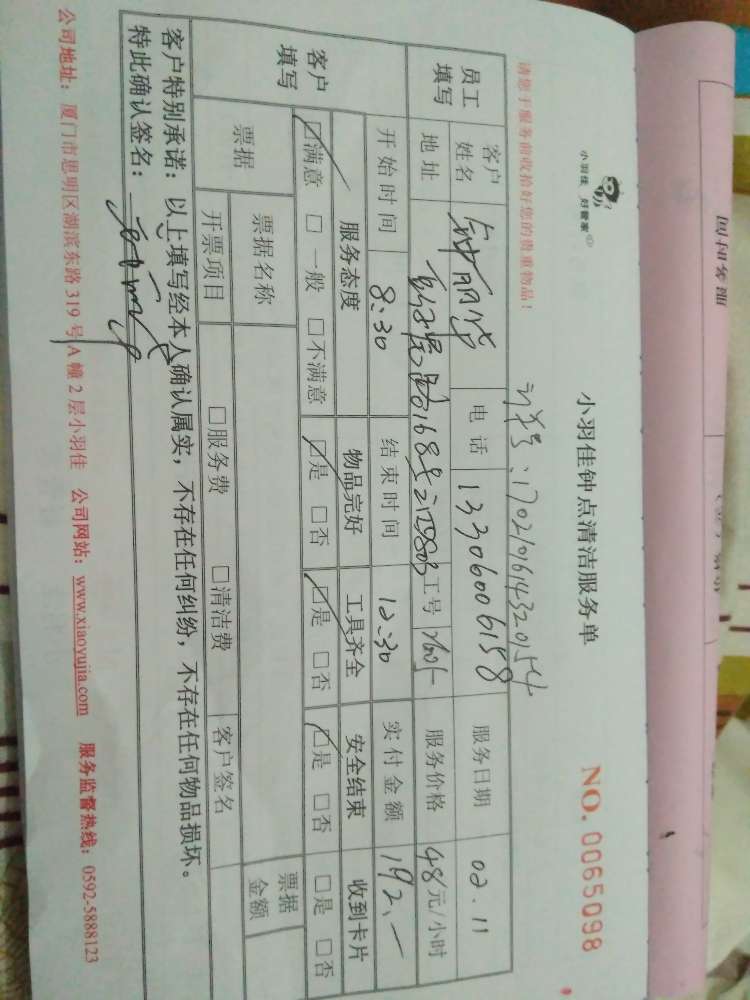 小羽佳 好管家
小羽佳钟点清洁服务单
NO. 0065098
请您于服务前收拾好您的贵重物品！
订单号：1702101614320154
员工填写 客户姓名 钟丽 电话 13306006158 服务日期 02.11
地址 168号 803 工号 服务价格 48元/小时
开始时间 8:30 结束时间 12:30 实付金额 192.—
客户填写 服务态度 物品完好 工具齐全 安全结束 收到卡片
☑满意 □一般 □不满意 ☑是 □否 ☑是 □否 ☑是 □否 □是 □否
票据 票据名称 票据金额
开票项目 □服务费 □清洁费 客户签名
客户特别承诺：以上填写经本人确认属实，不存在任何纠纷，不存在任何物品损坏。
特此确认签名：
公司地址：厦门市思明区湖滨东路319号A幢2层小羽佳 公司网站：www.xiaoyujia.com 服务监督热线：0592-5888123